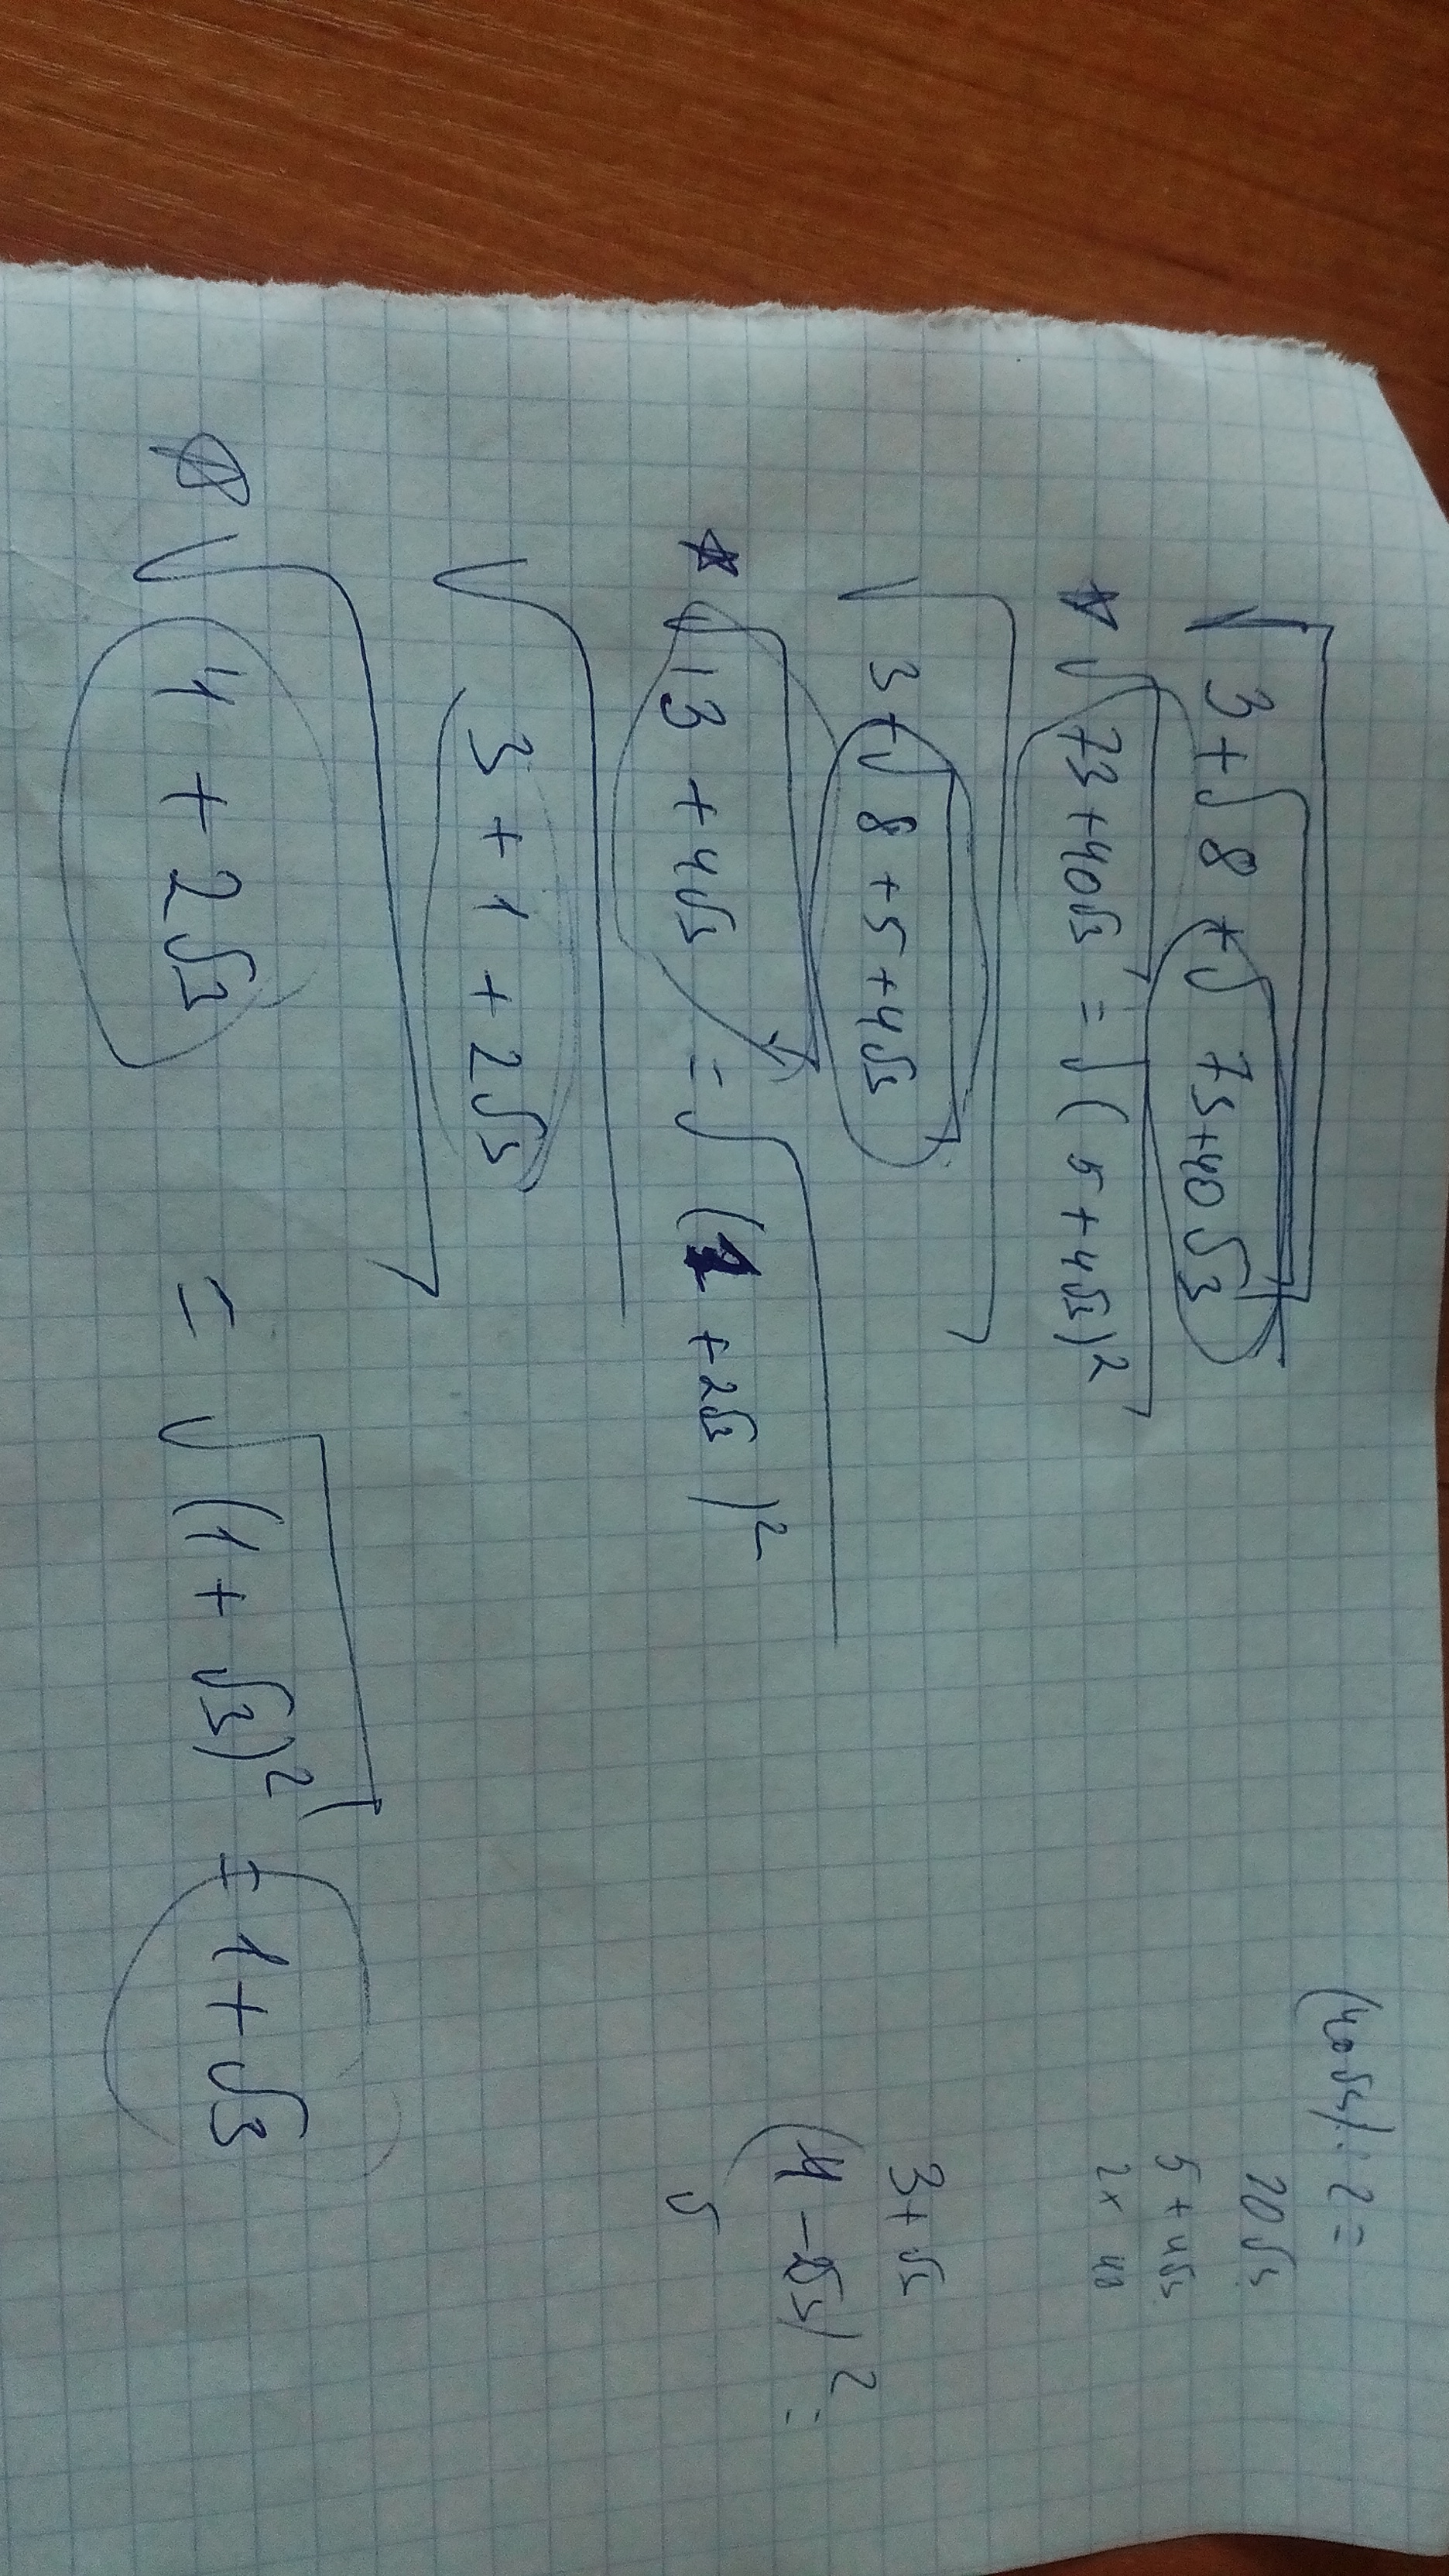 √3+√8+√73+40√3
☆ √73+40√3 = √(5+4√3)²
√3+√8+5+4√3
☆ √13+4√3 = √(1+2√3)²
√3+1+2√3
☆ √4+2√3 = √(1+√3)² = 1+√3
(40√3):2=
20√3
5+4√3
2× 40
3+√3
(4-2√3)²=